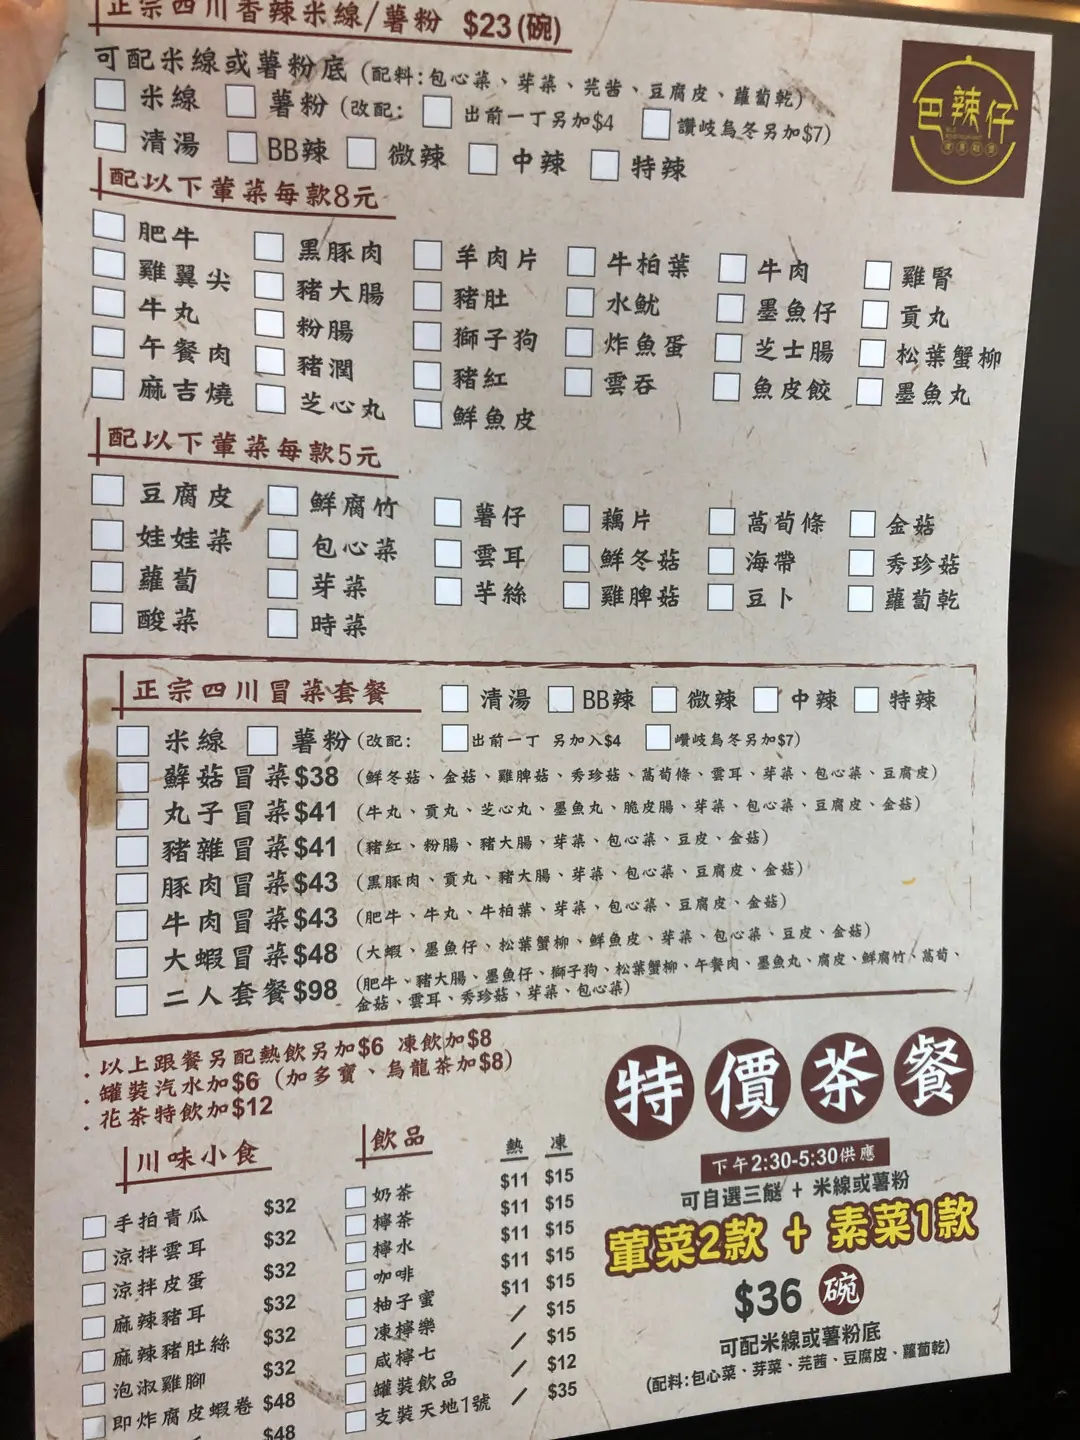 正宗四川香辣米線/薯粉 $23(碗)
可配米線或薯粉底 (配料:包心菜、芽菜、芫茜、豆腐皮、蘿蔔乾)
米線 薯粉 (改配: 出前一丁另加$4 讚岐烏冬另加$7)
清湯 BB辣 微辣 中辣 特辣
巴辣仔
配以下葷菜每款8元
肥牛 黑豚肉 羊肉片 牛柏葉 牛肉 雞腎
雞翼尖 豬大腸 豬肚 水魷 墨魚仔 貢丸
牛丸 粉腸 獅子狗 炸魚蛋 芝士腸 松葉蟹柳
午餐肉 豬潤 豬紅 雲吞 魚皮餃 墨魚丸
麻吉燒 芝心丸 鮮魚皮
配以下葷菜每款5元
豆腐皮 鮮腐竹 薯仔 藕片 萵筍條 金菇
娃娃菜 包心菜 雲耳 鮮冬菇 海帶 秀珍菇
蘿蔔 芽菜 芋絲 雞脾菇 豆卜 蘿蔔乾
酸菜 時菜
正宗四川冒菜套餐 清湯 BB辣 微辣 中辣 特辣
米線 薯粉 (改配: 出前一丁 另加入$4 讚岐烏冬另加$7)
鮮菇冒菜$38 (鮮冬菇、金菇、雞脾菇、秀珍菇、萵筍條、雲耳、芽菜、包心菜、豆腐皮)
丸子冒菜$41 (牛丸、貢丸、芝心丸、墨魚丸、脆皮腸、芽菜、包心菜、豆腐皮、金菇)
豬雜冒菜$41 (豬紅、粉腸、豬大腸、芽菜、包心菜、豆皮、金菇)
豚肉冒菜$43 (黑豚肉、貢丸、豬大腸、芽菜、包心菜、豆腐皮、金菇)
牛肉冒菜$43 (肥牛、牛丸、牛柏葉、芽菜、包心菜、豆腐皮、金菇)
大蝦冒菜$48 (大蝦、墨魚仔、松葉蟹柳、鮮魚皮、芽菜、包心菜、豆皮、金菇)
二人套餐$98 (肥牛、豬大腸、墨魚仔、獅子狗、松葉蟹柳、午餐肉、墨魚丸、腐皮、鮮腐竹、萵筍、
金菇、雲耳、秀珍菇、芽菜、包心菜)
.以上跟餐另配熱飲另加$6 凍飲加$8
.罐裝汽水加$6 (加多寶、烏龍茶加$8)
.花茶特飲加$12
川味小食
手拍青瓜 $32
涼拌雲耳 $32
涼拌皮蛋 $32
麻辣豬耳 $32
麻辣豬肚絲 $32
泡淑雞腳 $32
即炸腐皮蝦卷 $48
$48
飲品 熱 凍
奶茶 $11 $15
檸茶 $11 $15
檸水 $11 $15
咖啡 $11 $15
柚子蜜 $11 $15
凍檸樂 / $15
咸檸七 / $15
罐裝飲品 / $12
支裝天地1號 / $35
特價茶餐
下午2:30-5:30供應
可自選三餸 + 米線或薯粉
葷菜2款 + 素菜1款
$36 碗
可配米線或薯粉底
(配料:包心菜、芽菜、芫茜、豆腐皮、蘿蔔乾)